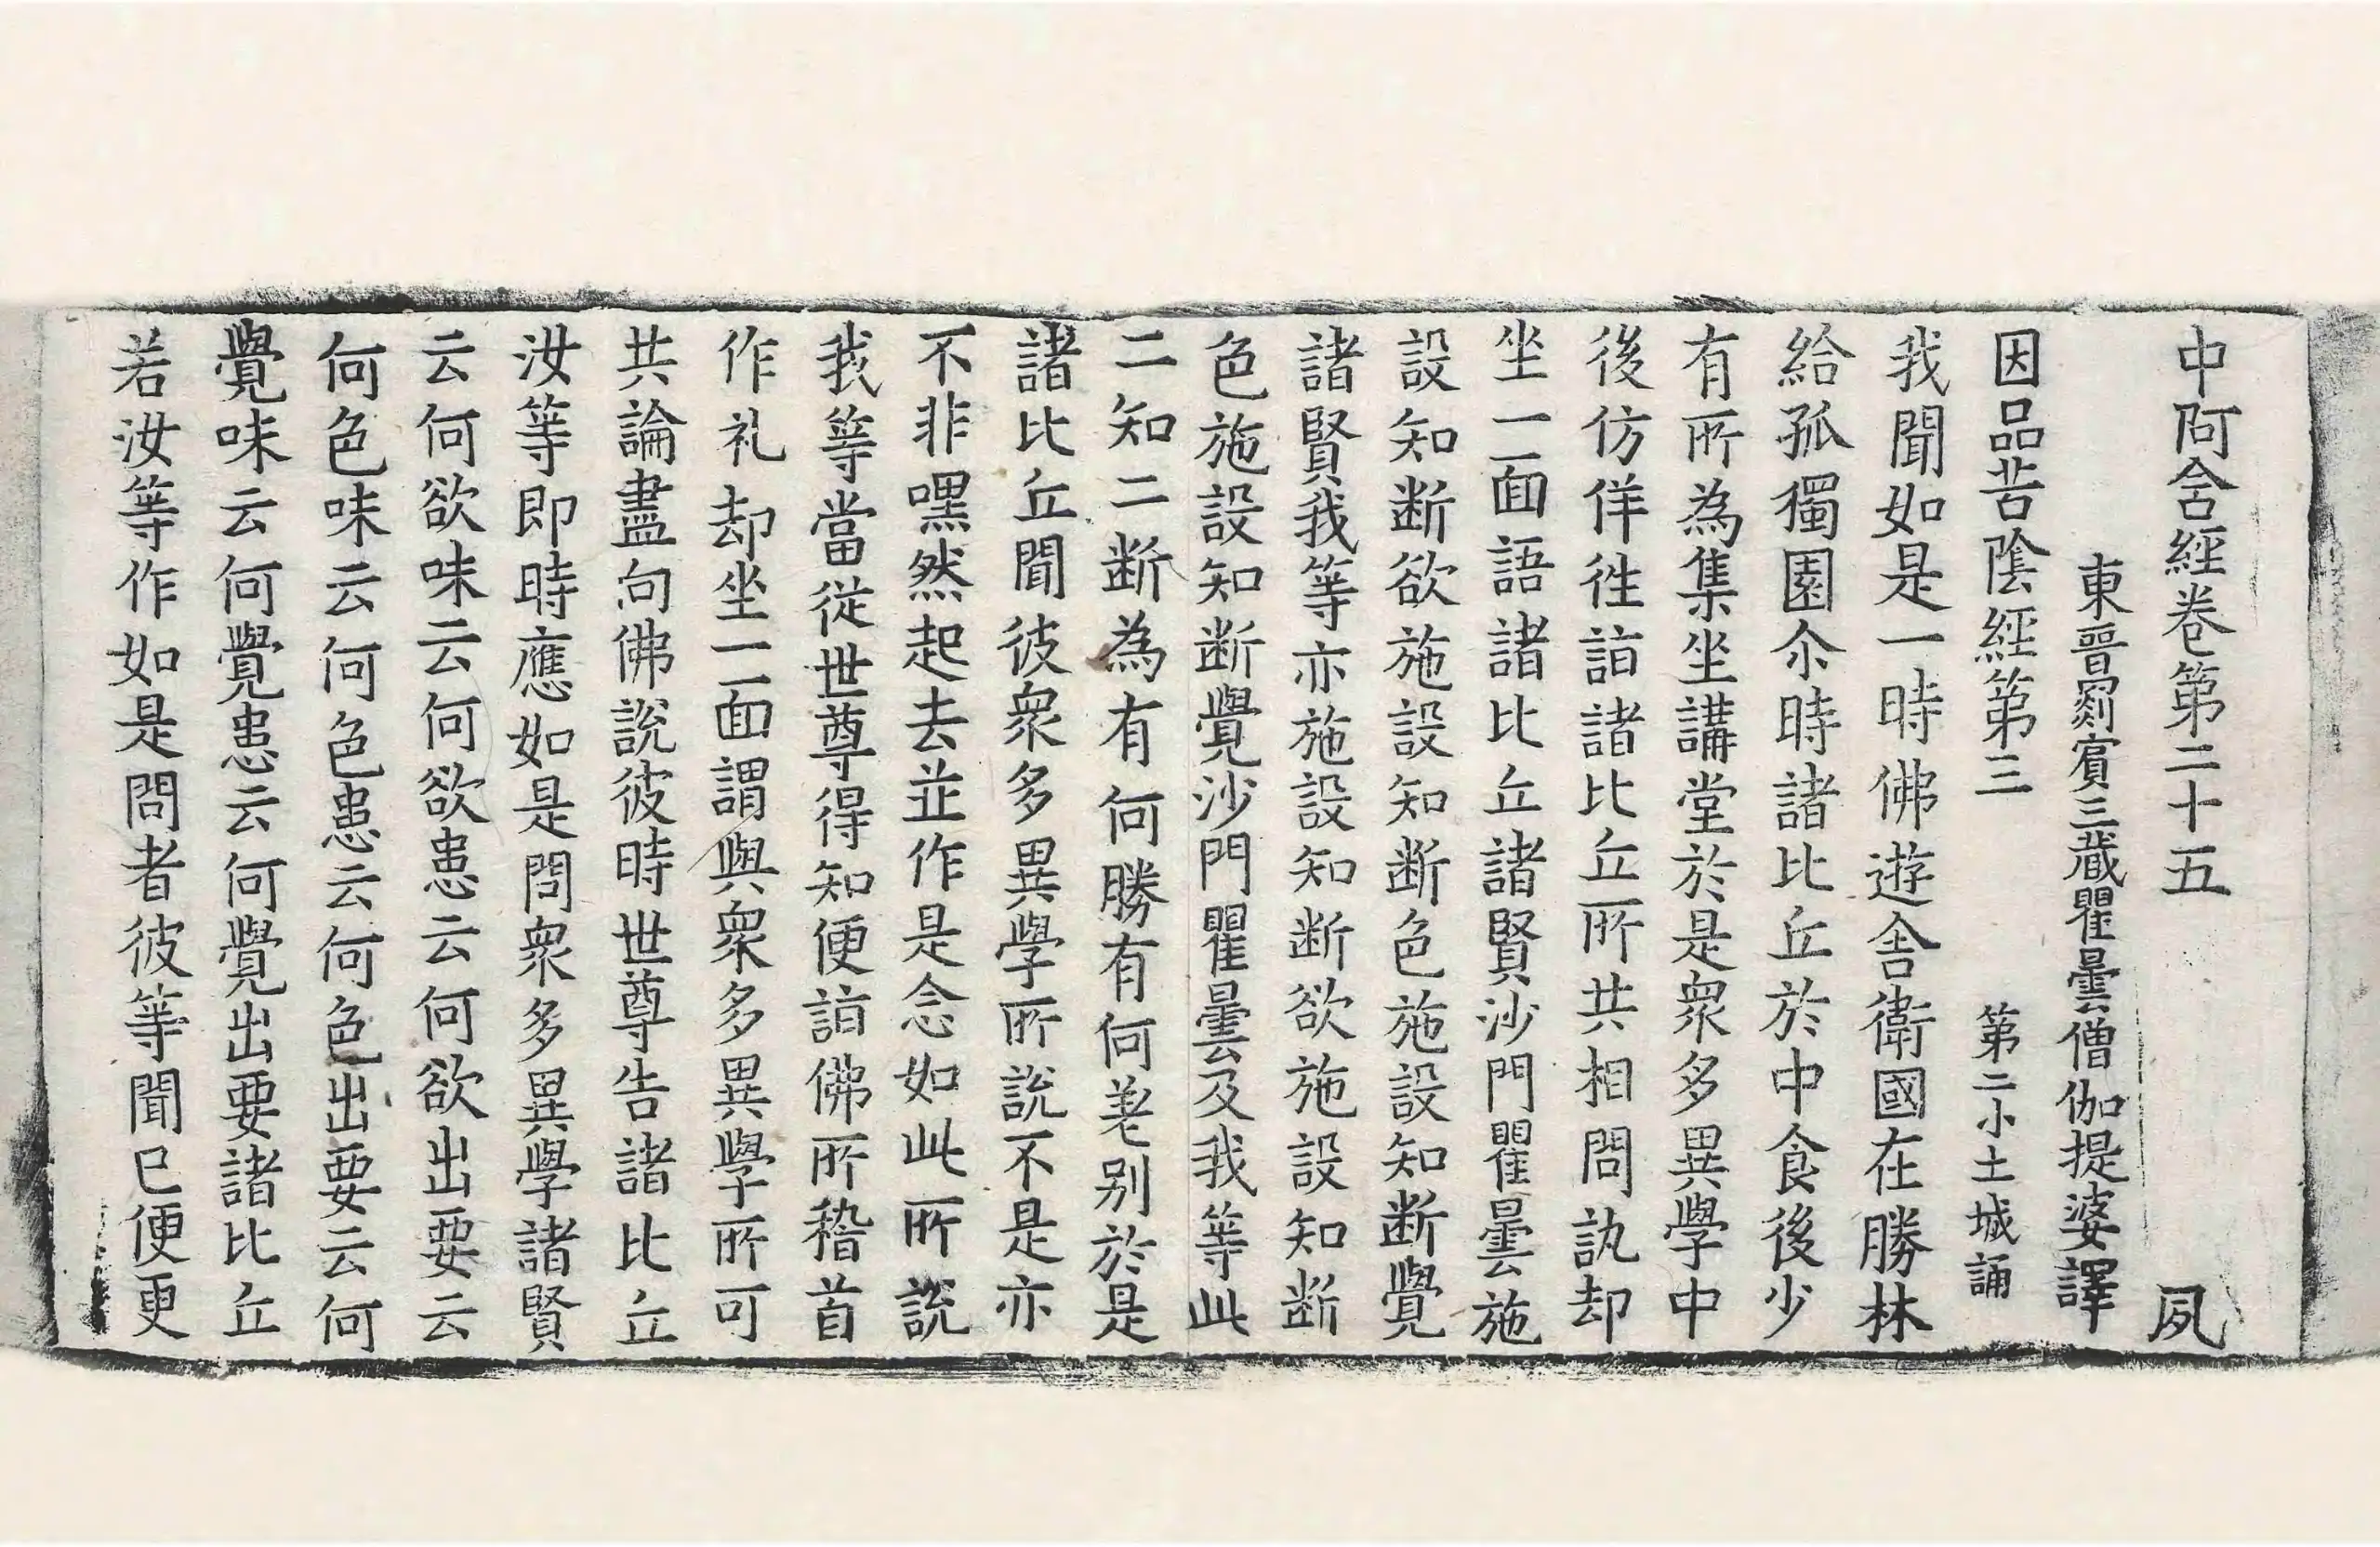 中阿含經卷第二十五　夙
東晉罽賓三藏瞿曇僧伽提婆譯
因品苦陰經第三　第二小土城誦
我聞如是一時佛遊舍衛國在勝林
給孤獨園尒時諸比丘於中食後少
有所為集坐講堂於是衆多異學中
後仿佯徃詣諸比丘所共相問訊却
坐一面語諸比丘諸賢沙門瞿曇施
設知断欲施設知断色施設知断覺
諸賢我等亦施設知断欲施設知断
色施設知断覺沙門瞿曇及我等此
二知二断為有何勝有何差别於是
諸比丘聞彼衆多異學所說不是亦
不非嘿然起去並作是念如此所說
我等當從世尊得知便詣佛所稽首
作礼却坐一面謂與衆多異學所可
共論盡向佛說彼時世尊告諸比丘
汝等即時應如是問衆多異學諸賢
云何欲味云何欲患云何欲出要云
何色味云何色患云何色出要云何
覺味云何覺患云何覺出要諸比丘
若汝等作如是問者彼等聞已便更